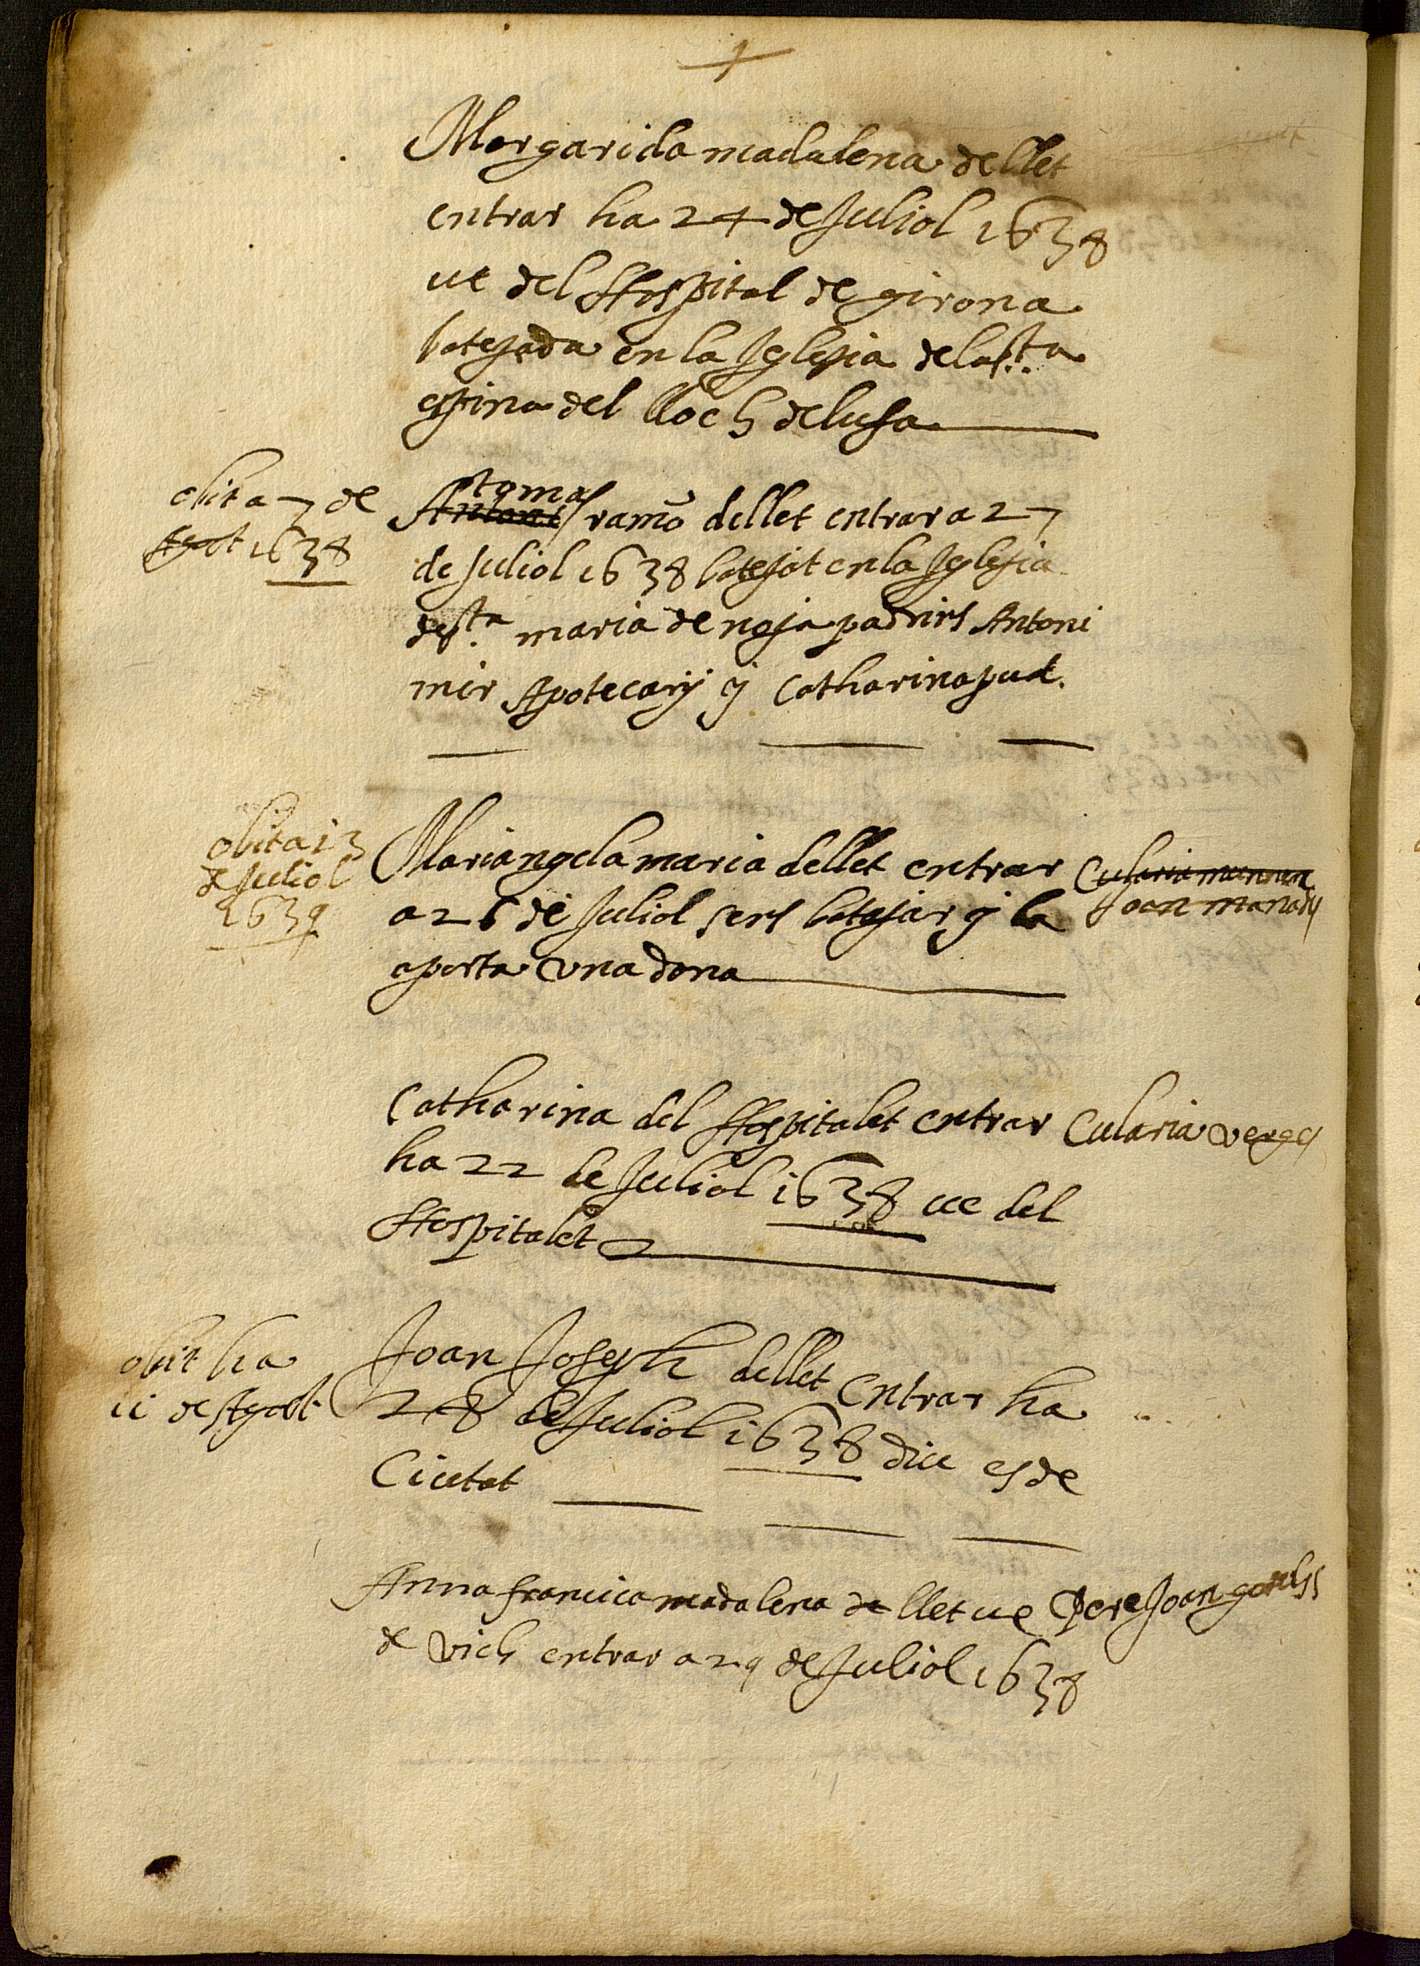 Margarida madalena dellet
entrar ha 24 de Juliol 1638
ve del Hospital de girona
batejada en la Iglesia de la s.ta
espina del lloch de lusa
obit a 7 de
Agost 1638
Antoni tomas ramō dellet entrar a 27
de Juliol 1638 batejat en la Iglesia
de s.ta maria de noja padrins Antoni
mir Apotecary y Catharina pud.
obit a 13
de Juliol
1639
Mariangela maria dellet entrar
a 26 de Juliol sens batejar y la
aporta una dona
Cularia
Joan
Catharina del Hospitalet entrar
ha 22 de Juliol 1638 ve del
Hospitalet
Cularia verges
obit ha
11 de Agost
Joan Joseph dellet entrar ha
28 de Juliol 1638 diu es de
Ciutat
Anna francisca madalena de llet ve
de vich entrar a 29 de Juliol 1638
Pere Joan